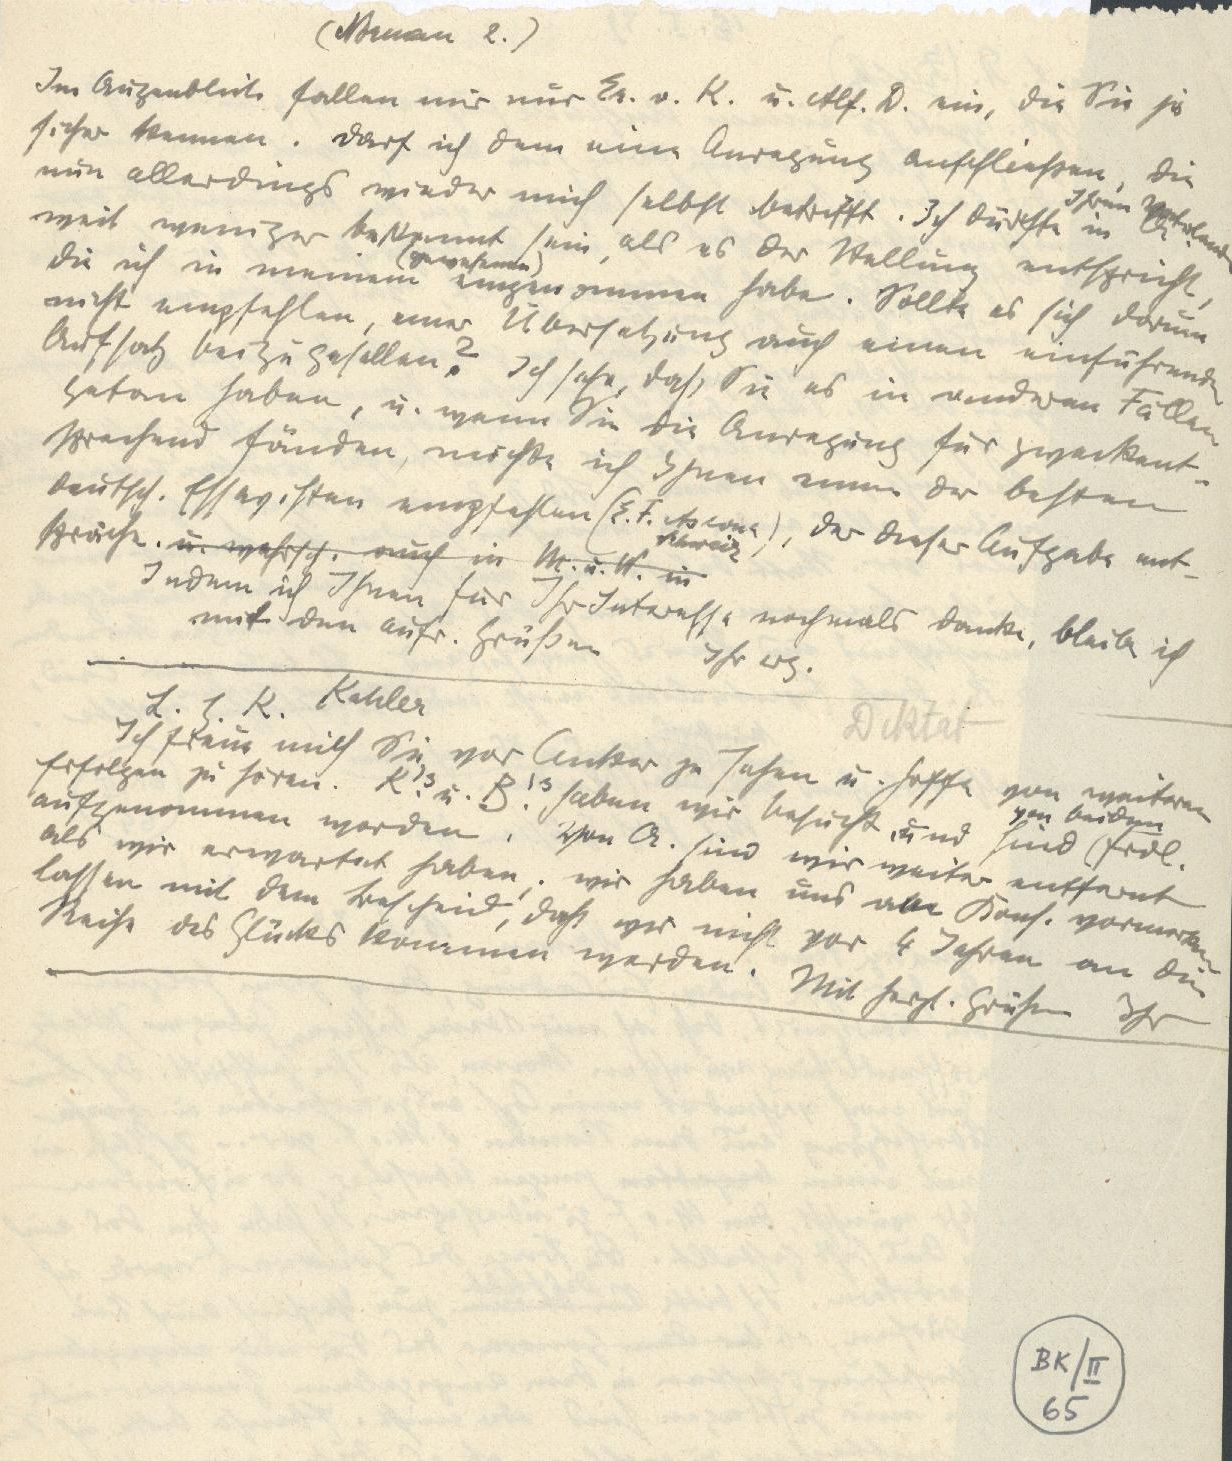 (Neman 2.)
Im Augenblick fallen mir nur Er. v. K. u. Alf. D. ein, die Sie ja
sicher kennen. Darf ich dem eine Anregung anschließen, die
nun allerdings wieder mich selbst betrifft. Ich dürfte in Ihrem Vaterland
weit weniger bekannt sein, als es der Stellung entspricht,
die ich in meinem (gewesenen) eingenommen habe. Sollte es sich darum
nicht empfehlen, einer Übersetzung auch einen einführenden
Aufsatz beizugesellen? Ich sehe, daß Sie es in anderen Fällen
getan haben, u. wenn Sie die Anregung für zweckent-
sprechend fänden, möchte ich Ihnen einen der besten
deutsch. Essayisten empfehlen (E. F. Ascona Schweiz), der dieser Aufgabe ent-
spräche. u. wahrsch. auch in M. u. W. in
Indem ich Ihnen für Ihr Interesse nochmals danke, bleibe ich
mit den aufr. Grüßen Ihr erg.
L. H. K. Kahler
Diktat
Ich freue mich Sie vor Anker zu sehen u. hoffe von weiteren
Erfolgen zu hören. K's u. B's haben wir besucht und sind von beiden frdl.
aufgenommen worden. Von A. sind wir weiter entfernt
als wir erwartet haben; wir haben uns am Kons. vormerken
lassen mit dem Bescheid, daß wir nicht vor 4 Jahren an die
Reihe des Glücks kommen werden. Mit herzl. Grüßen Ihr
BK/II
65